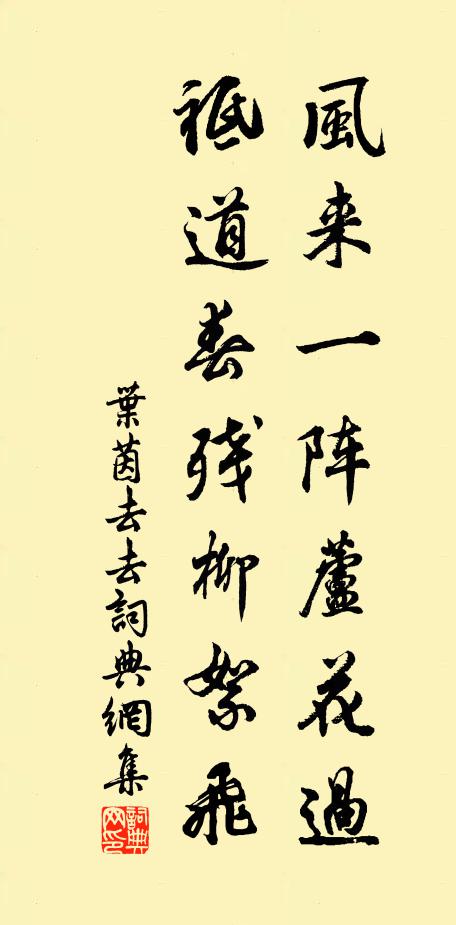 風来一阵蘆花過
祗道春残柳絮飛
葉茵去去詞典網集
詞典網印